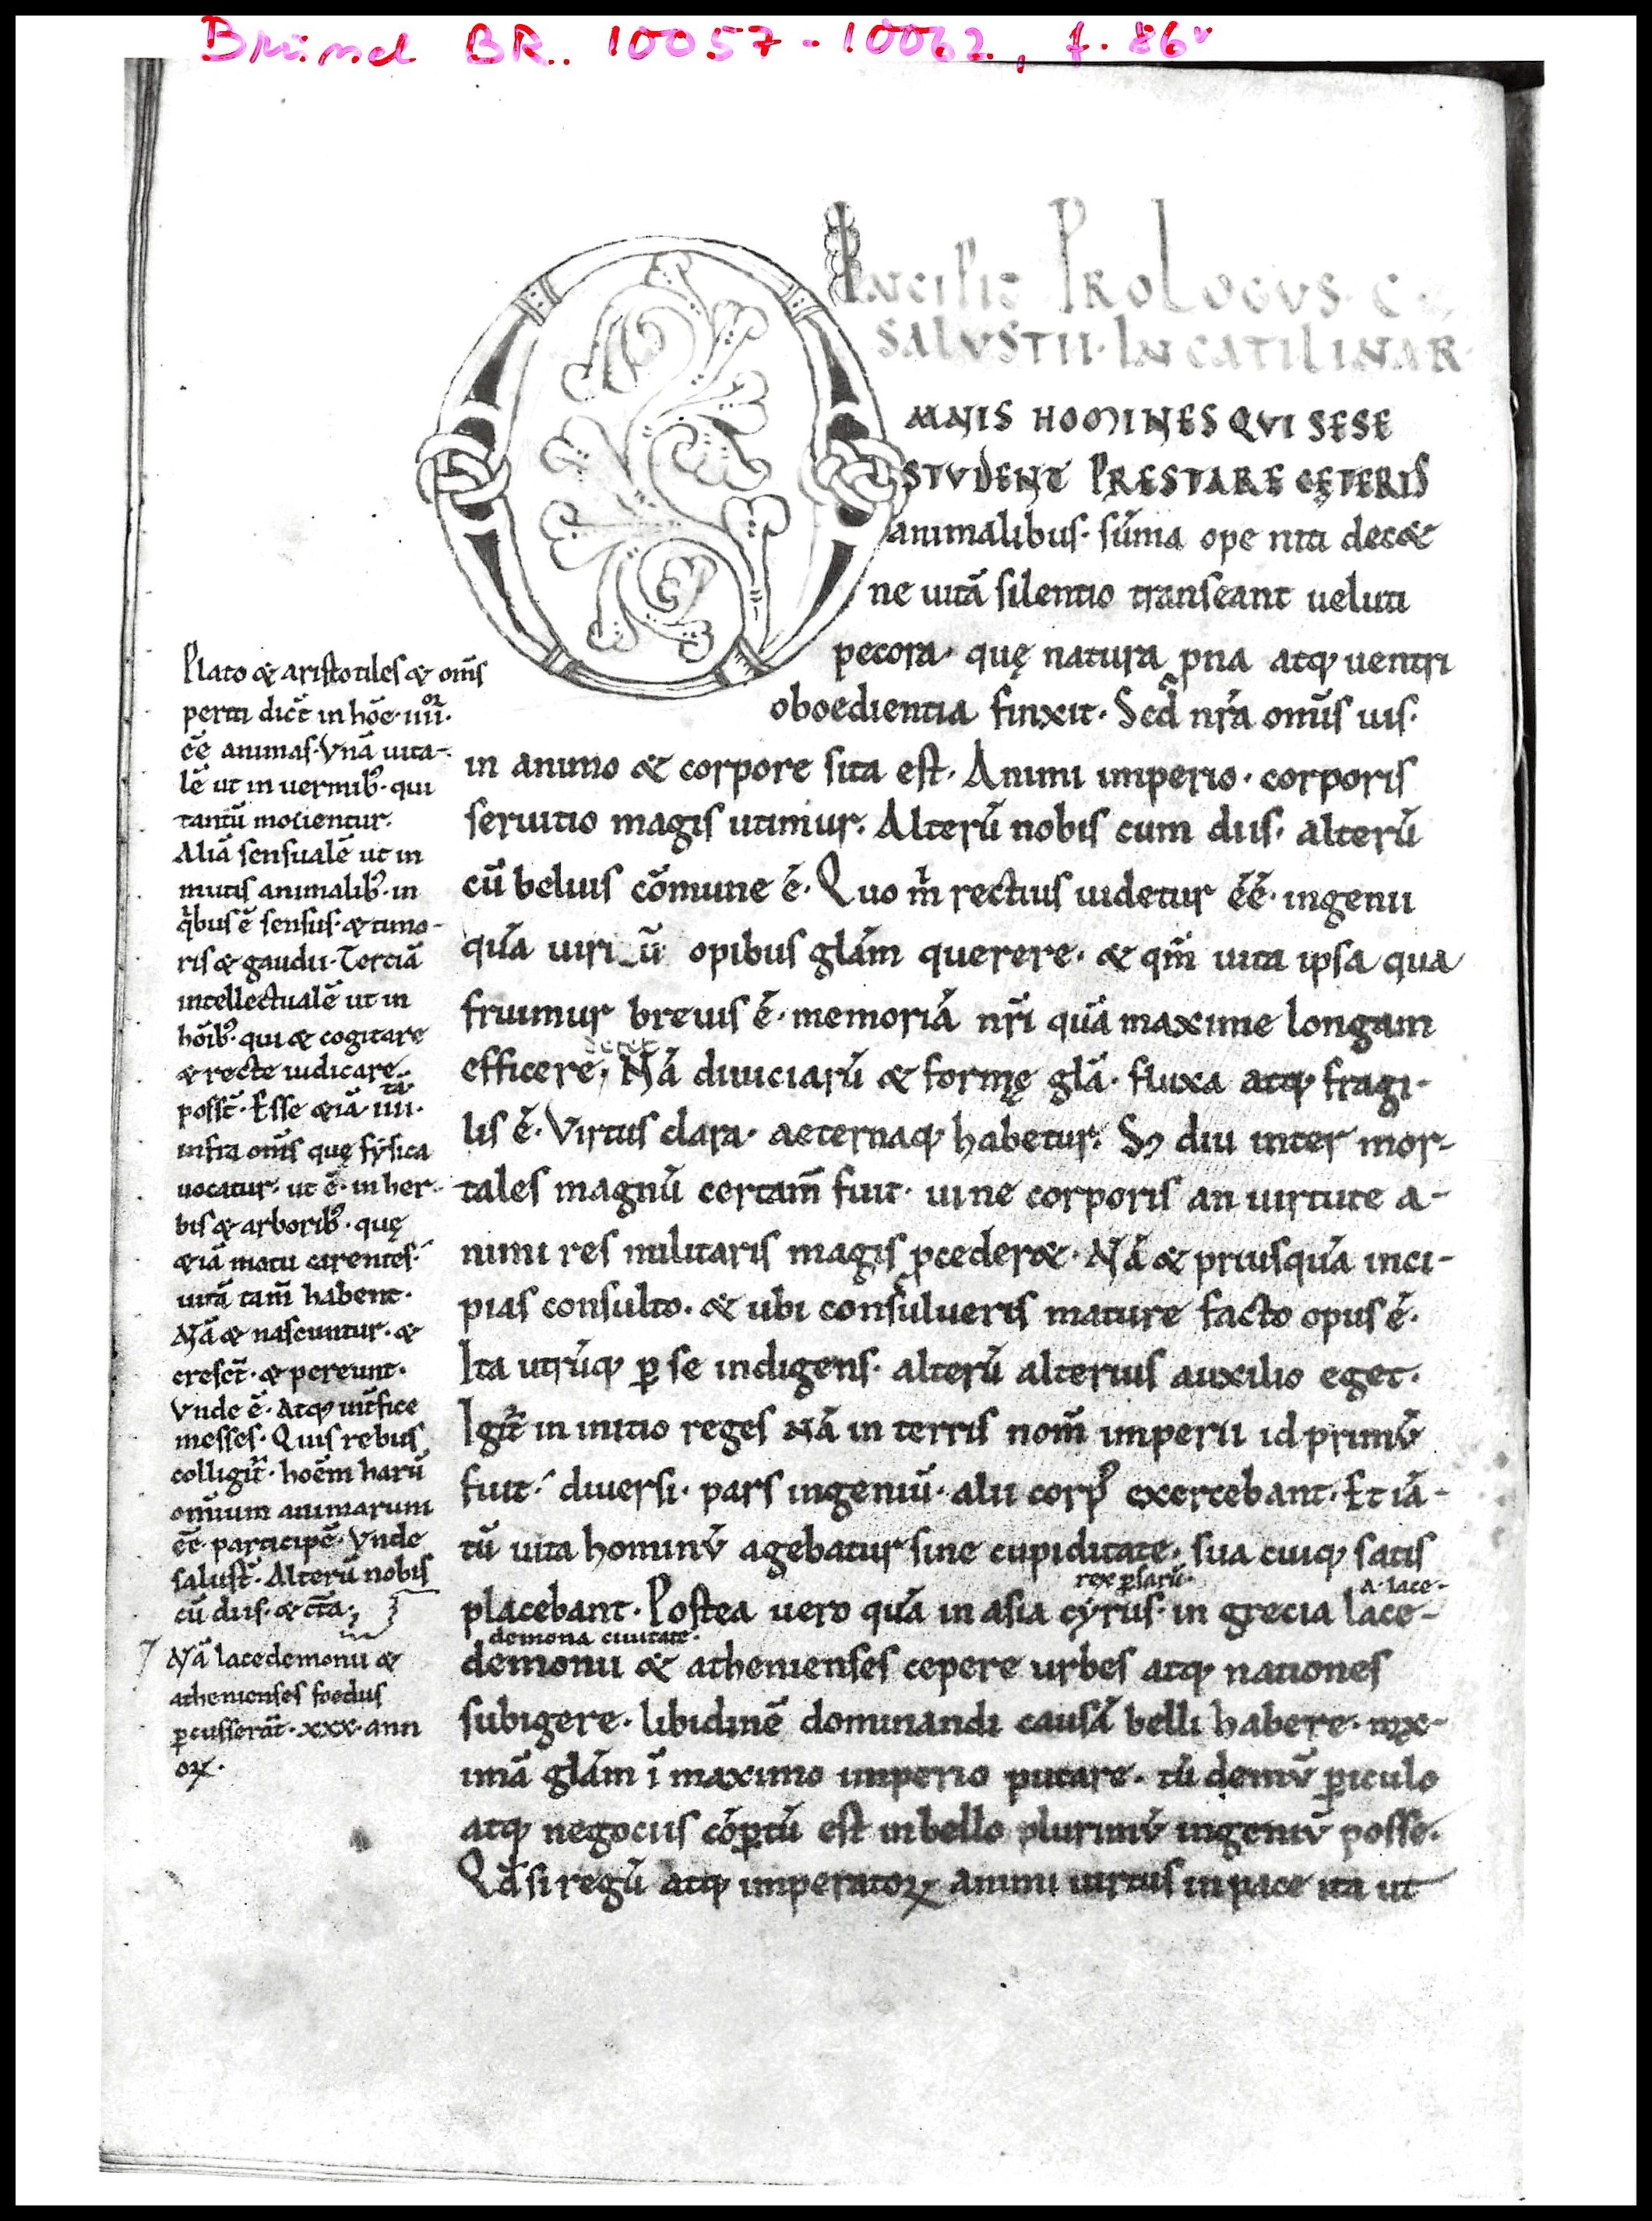 Brüssel BR. 10057-10062, f. 86v
INCIPIT PROLOGUS C
SALVSTII · IN CATILINAR
OMNIS HOMINES QVI SESE
STVDENT PRESTARE CĘTERIS
animalibus · sūma ope niti dec&
ne uitā silentio transeant ueluti
pecora · quę natura pna atq; uentri
oboedientia finxit · Sed nr̄a om̄is uis ·
in animo & corpore sita est · Animi imperio · corporis
seruitio magis utimur · Alterū nobis cum diis · alterū
cū beluis cōmune ē · Quo m̄ rectius uidetur ēē · ingenii
quā uiriū opibus glām querere · & qm̄ uita ipsa qua
fruimur breuis ē · memoriā nr̄i quā maxime longam
efficere; Nā diuiciarū & formę glā · fluxa atq; fragi-
lis ē · Virtus clara · aeternaq; habetur · S; diu inter mor-
tales magnū certam̄ fuit · uine corporis an uirtute a-
nimi res militaris magis pceder& · Nā & priusquā inci-
pias consulto · & ubi consulueris mature facto opus ē ·
Ita utrūq; p se indigens · alterū alterius auxilio eget ·
Igit̄ in initio reges nā in terris nom̄ imperii id primū
fuit · diuersi · pars ingeniū · alii corp' exercebant · Et iā-
tū uita hominū agebatur sine cupiditate · sua cuiq; satis
rex psarū · a · lace-
placebant · Postea uero quā in asia cyrus · in grecia lace-
demona ciuitate ·
demonii & athenienses cepere urbes atq; nationes
subigere · libidinē dominandi causā belli habere · mx-
imā glām ī maximo imperio putare · tū demū piculo
atq; negociis cōptū est in bello plurimū ingeniū posse ·
Qd si regū atq; imperatoꝝ animi uirtus in pace ita ut
Plato & aristotiles & om̄s
periti dict̄ in hōe · iiii or ·
ēē animas · Vnā uita-
lē ut in uermib; · qui
tantū mouentur ·
Aliā sensualē ut in
mutis animalib; · in
qibus ē sensus · & timo-
ris & gaudii · Terciā
intellectualē ut in
hōib; · qui & cogitare
& recte iudicare
posst̄ · Esse &iā iiii tā ·
infra om̄s quę fysica
uocatur · ut ē · in her-
bis & arborib; · quę
&iā motu carentes ·
uitā tam̄ habent ·
Nā & nascuntur · &
cresct̄ · & pereunt ·
Vnde ē · Atq; uiufice
messes · Quis rebus
colligit̄ · hoēm harū
omnium animarum
ēē participē · Vnde
salust̄ · Alterū nobis
cū diis · & ct̄a ·;
Nā lacedemonii &
athenienses foedus
pcusserāt · xxx · ann
oꝝ ·